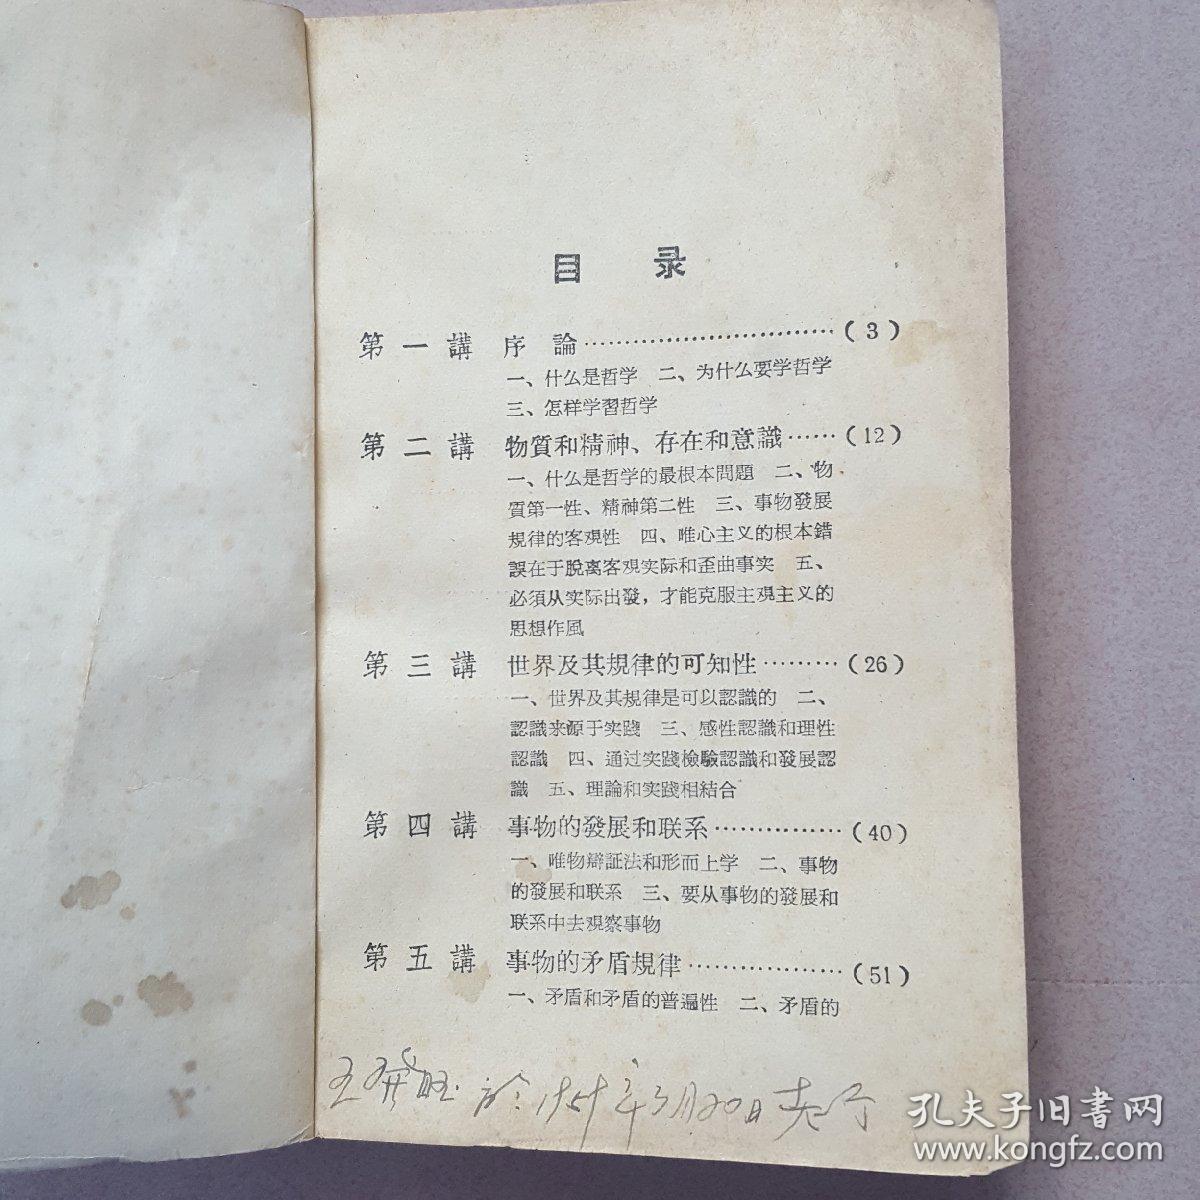 目 录
第一講 序 論……………………………(3)
一、什么是哲学 二、为什么要学哲学
三、怎样学習哲学
第二講 物質和精神、存在和意識……(12)
一、什么是哲学的最根本問題 二、物
質第一性、精神第二性 三、事物發展
規律的客观性 四、唯心主义的根本錯
誤在于脫离客观实际和歪曲事实 五、
必須从实际出發，才能克服主观主义的
思想作風
第三講 世界及其規律的可知性………(26)
一、世界及其規律是可以認識的 二、
認識来源于实踐 三、感性認識和理性
認識 四、通过实踐檢驗認識和發展認
識 五、理論和实踐相結合
第四講 事物的發展和联系……………(40)
一、唯物辯証法和形而上学 二、事物
的發展和联系 三、要从事物的發展和
联系中去观察事物
第五講 事物的矛盾規律………………(51)
一、矛盾和矛盾的普遍性 二、矛盾的
於1959年3月20日
孔夫子旧書网
www.kongfz.com